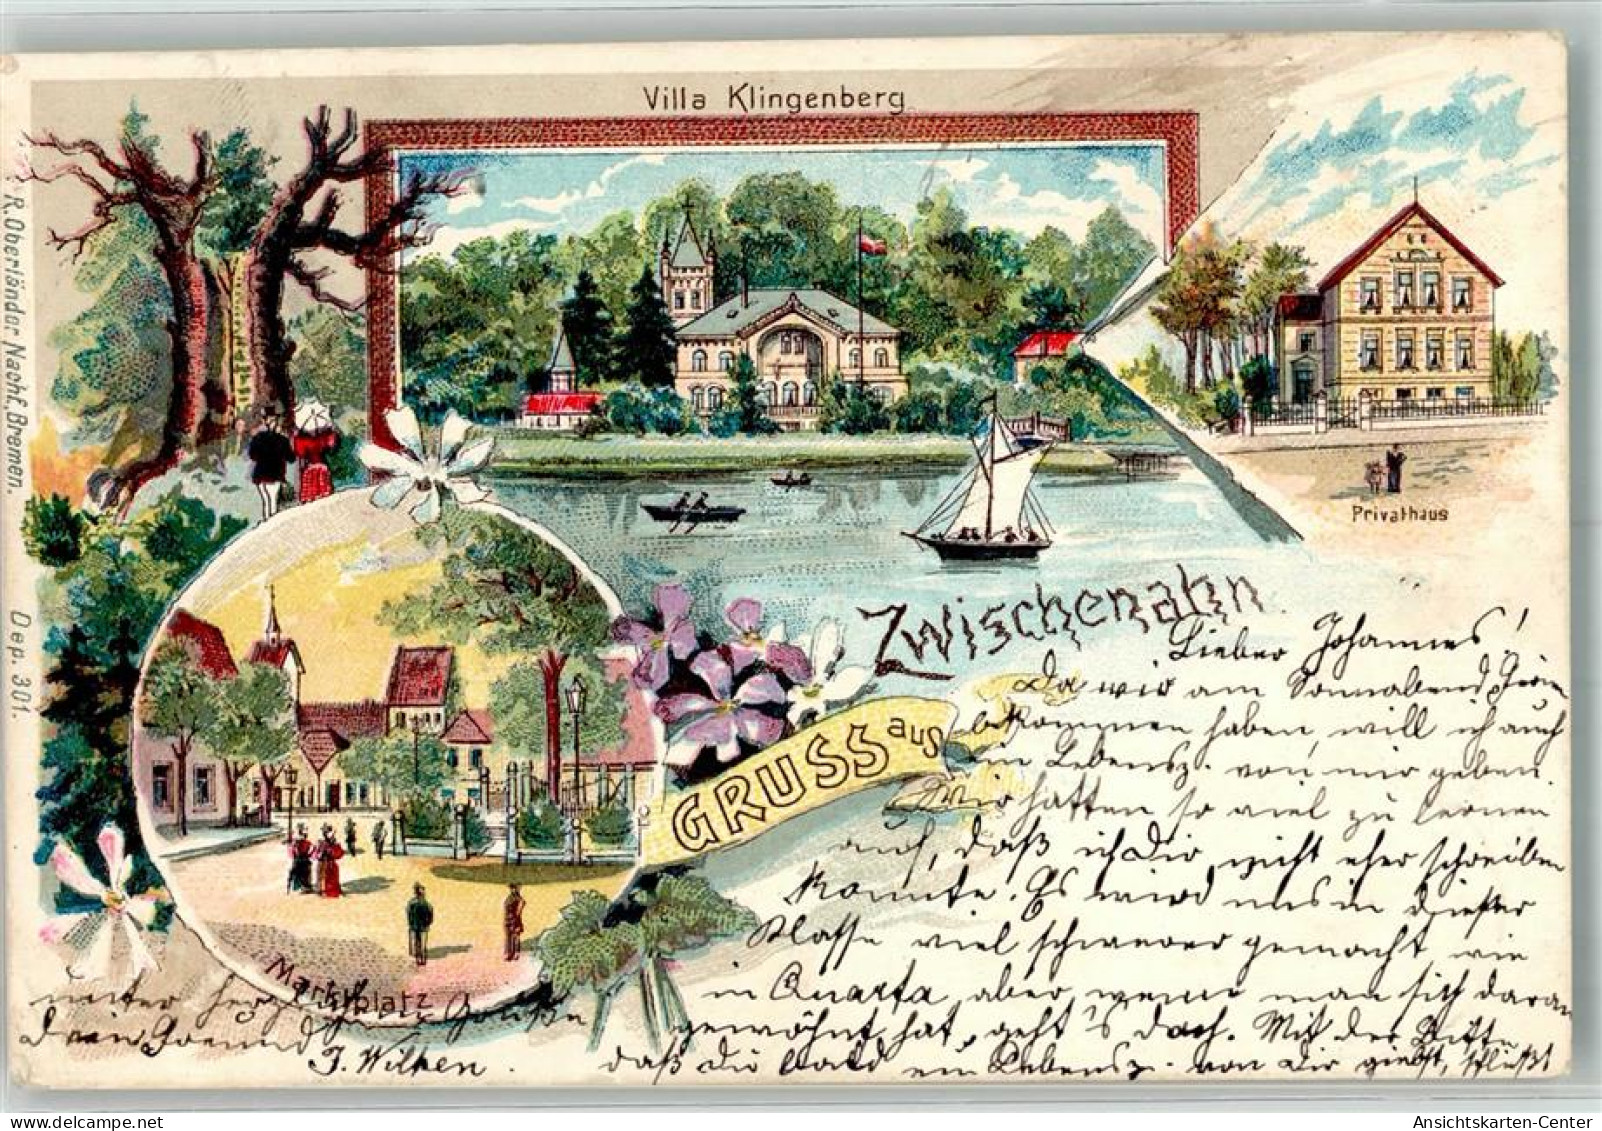 Villa Klingenberg
Privathaus
Zwischenahn
GRUSS aus
Marktplatz
R. Oberländer Nachf. Bremen.
Dep. 301.
Lieber Johannes!
Da wir am Sonnabend Ferien
bekommen haben, will ich auch
ein Lebensz. von mir geben.
Wir hatten so viel zu lernen
auf, daß ich Dir nicht eher schreiben
konnte. Es wird uns in dieser
Klasse viel schwerer gemacht, wie
in Quarta, aber wenn man sich daran
gewöhnt hat, geht's doch. Mit der Bitte
daß Du bald ein Lebensz. von Dir giebst, schließt
unter herzl. Grüße
Dein Freund
J. Wilken.
Ansichtskarten-Center